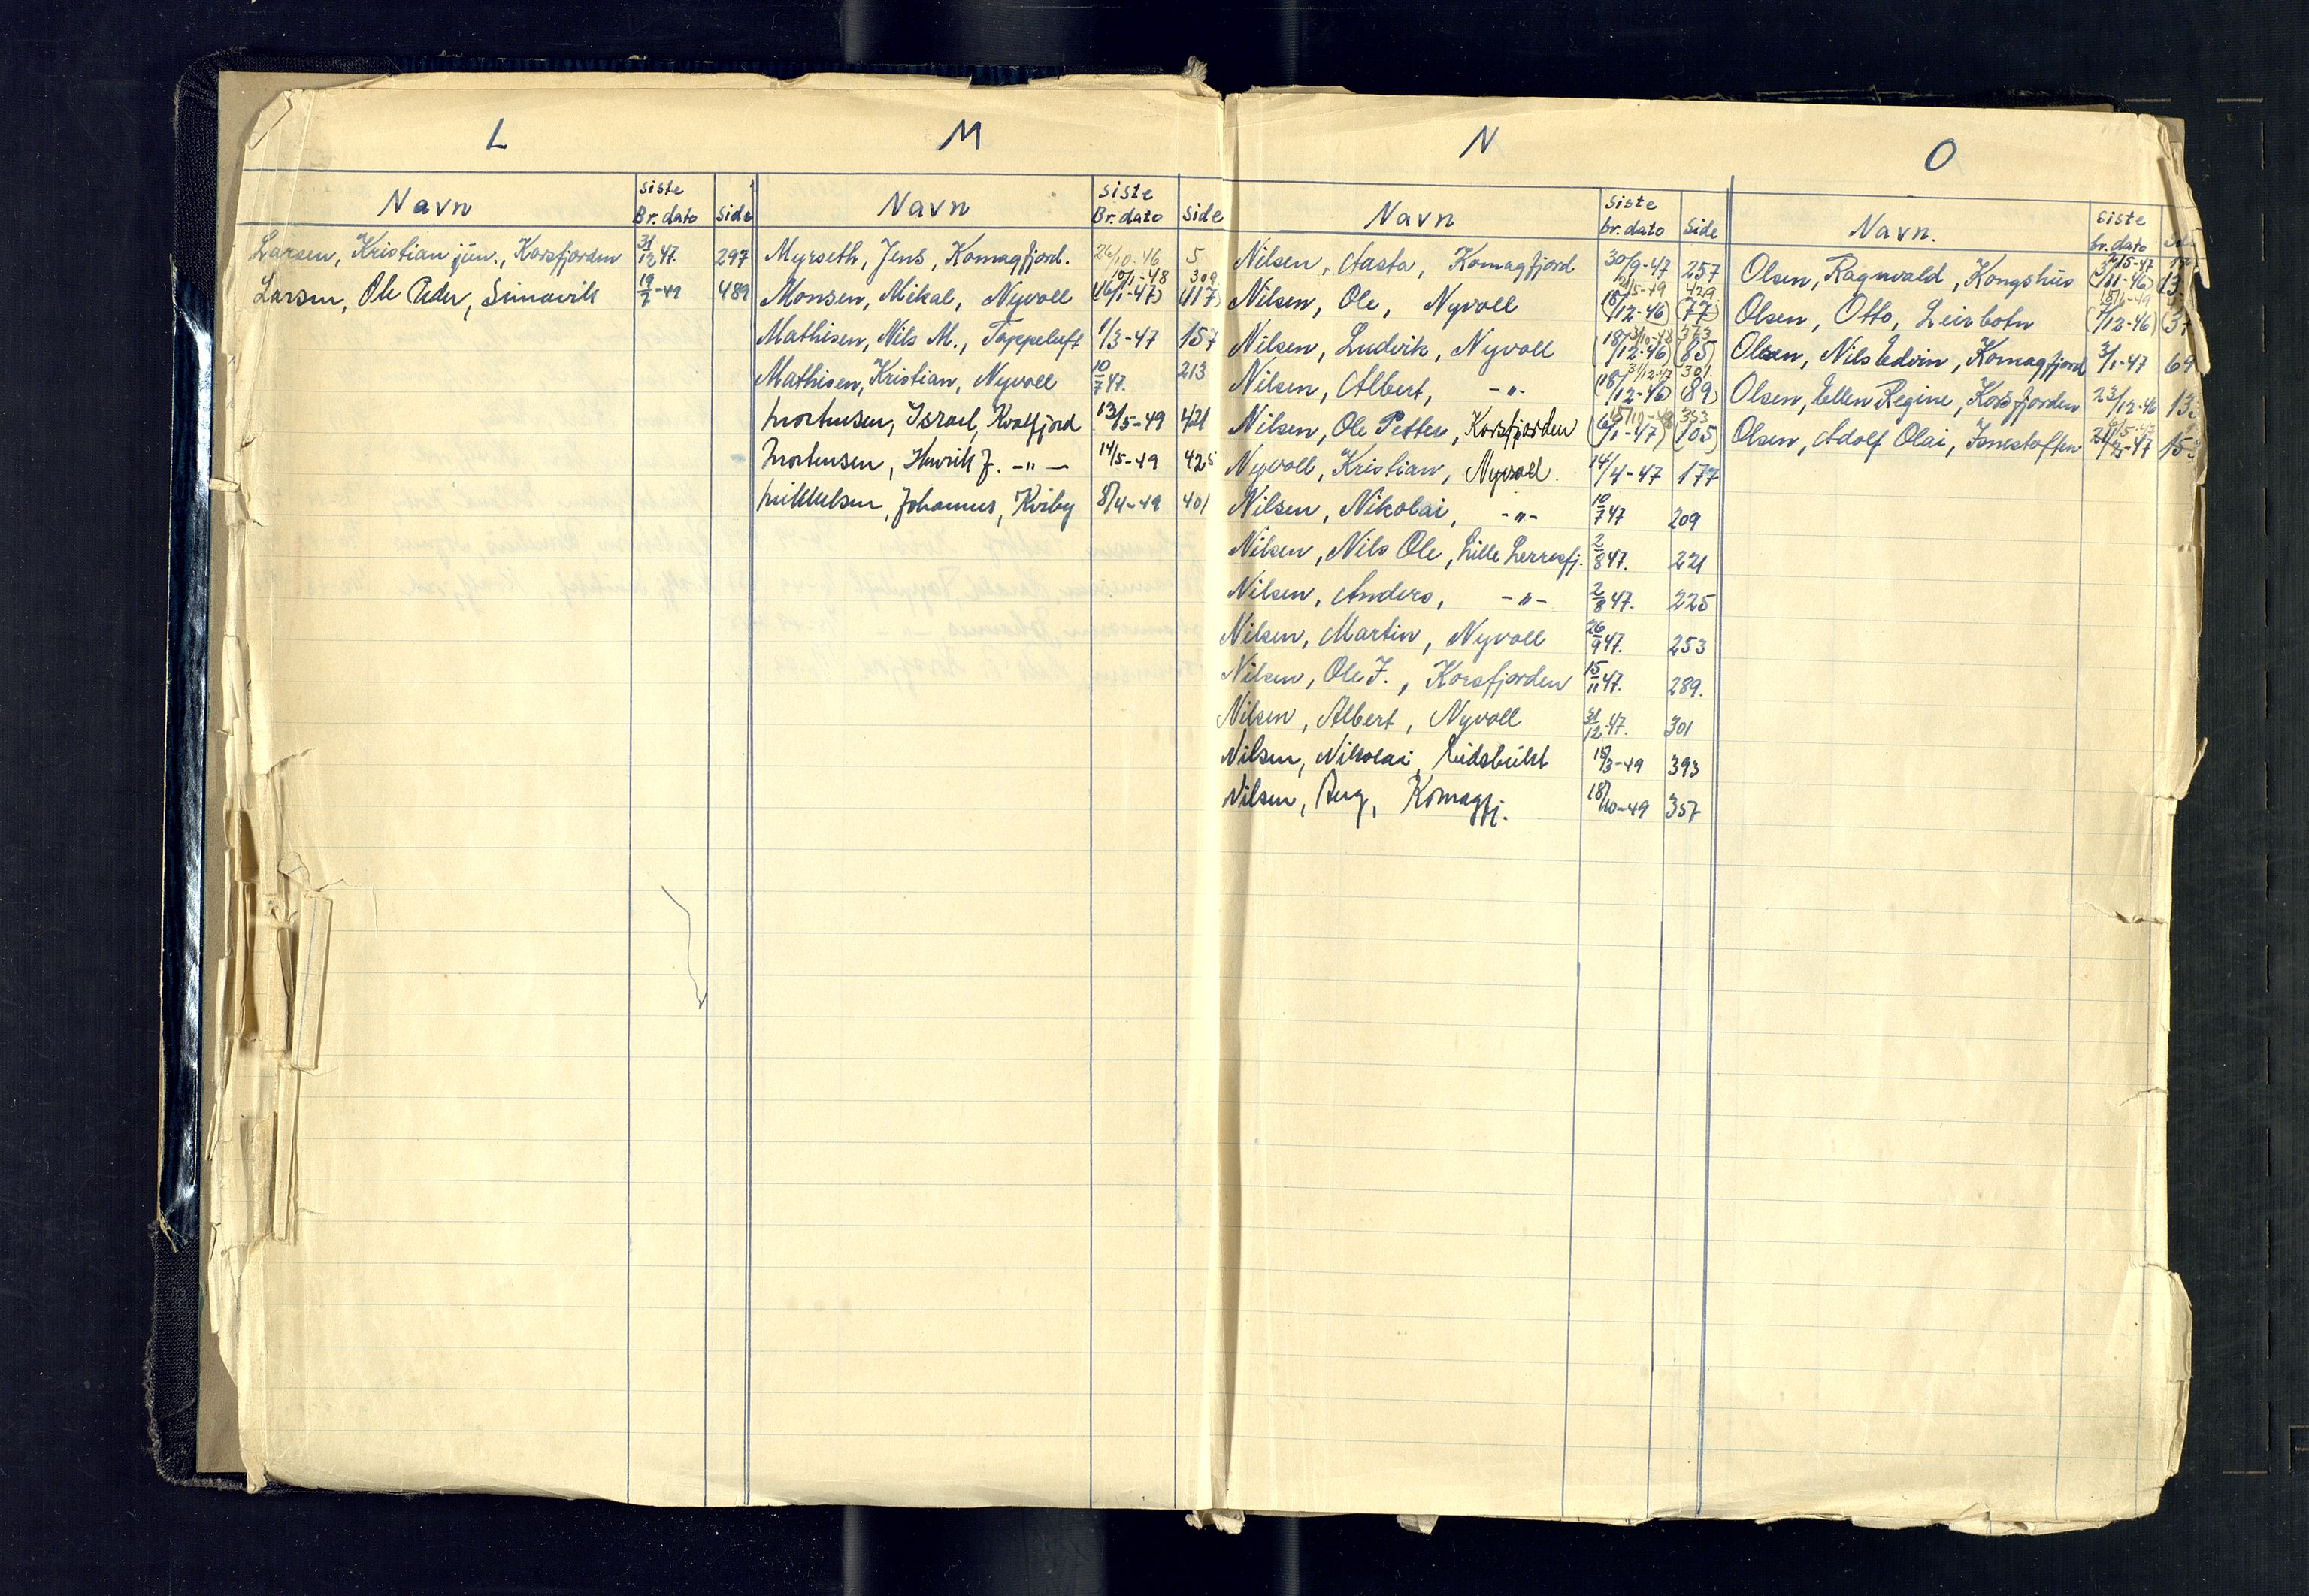 L
Navn siste Br. dato side
Larsen, Kristian jun., Korsfjorden 31/12 47. 297
Larsen, Ole Peder, Simavik 19/7-49 489
M
Navn siste Br. dato side
Myrseth, Jens, Komagfjord. 26/10-46 5
10/1-48 309
Monsen, Mikal, Nyvoll (16/1-47) (117)
Mathisen, Nils M., Tappeluft 1/3-47 157
Mathisen, Kristian, Nyvoll 10/7 47. 213
Mortensen, Israel, Kvalfjord 13/5-49 421
Mortensen, Henrik J. -"- 14/5-49 425
Mikkelsen, Johannes, Kviby 8/4-49 401
N
Navn siste br. dato Side
Nilsen, Aasta, Komagfjord 30/9-47 257
/5-49 429
Nilsen, Ole, Nyvoll (18/12-46) (77)
3/10-48 373
Nilsen, Ludvik, Nyvoll (18/12-46) (85)
31/12-47 301.
Nilsen, Albert, -"- (18/12-46) (89)
15/10-48 353
Nilsen, Ole Petter, Korsfjorden (6/1-47) (105)
Nyvoll, Kristian, Nyvoll. 14/4-47 177
Nilsen, Nikolai, -"- 10/7 47 209
Nilsen, Nils Ole, Lille Lerresfj. 2/8 47. 221
Nilsen, Anders, -"- 2/8 47. 225
Nilsen, Martin, Nyvoll 26/9 47. 253
Nilsen, Ole J., Korsfjorden 15/11 47. 289.
Nilsen, Albert, Nyvoll 31/12 47. 301
Nilsen, Nikolai, Eidsbukt 18/3-49 393
Nilsen, Aug, Komagfj. 18/10-49 357
O
Navn. siste br. dato
/5-47
Olsen, Ragnvald, Kongshus (5/11-46) 13
Olsen, Otto, Leirbotn (7/12-46) (37
Olsen, Nils Edvin, Komagfjord 3/1-47 69
Olsen, Ellen Regine, Korsfjorden 23/12-46
Olsen, Adolf Olai, Isnestoften 21/2-47